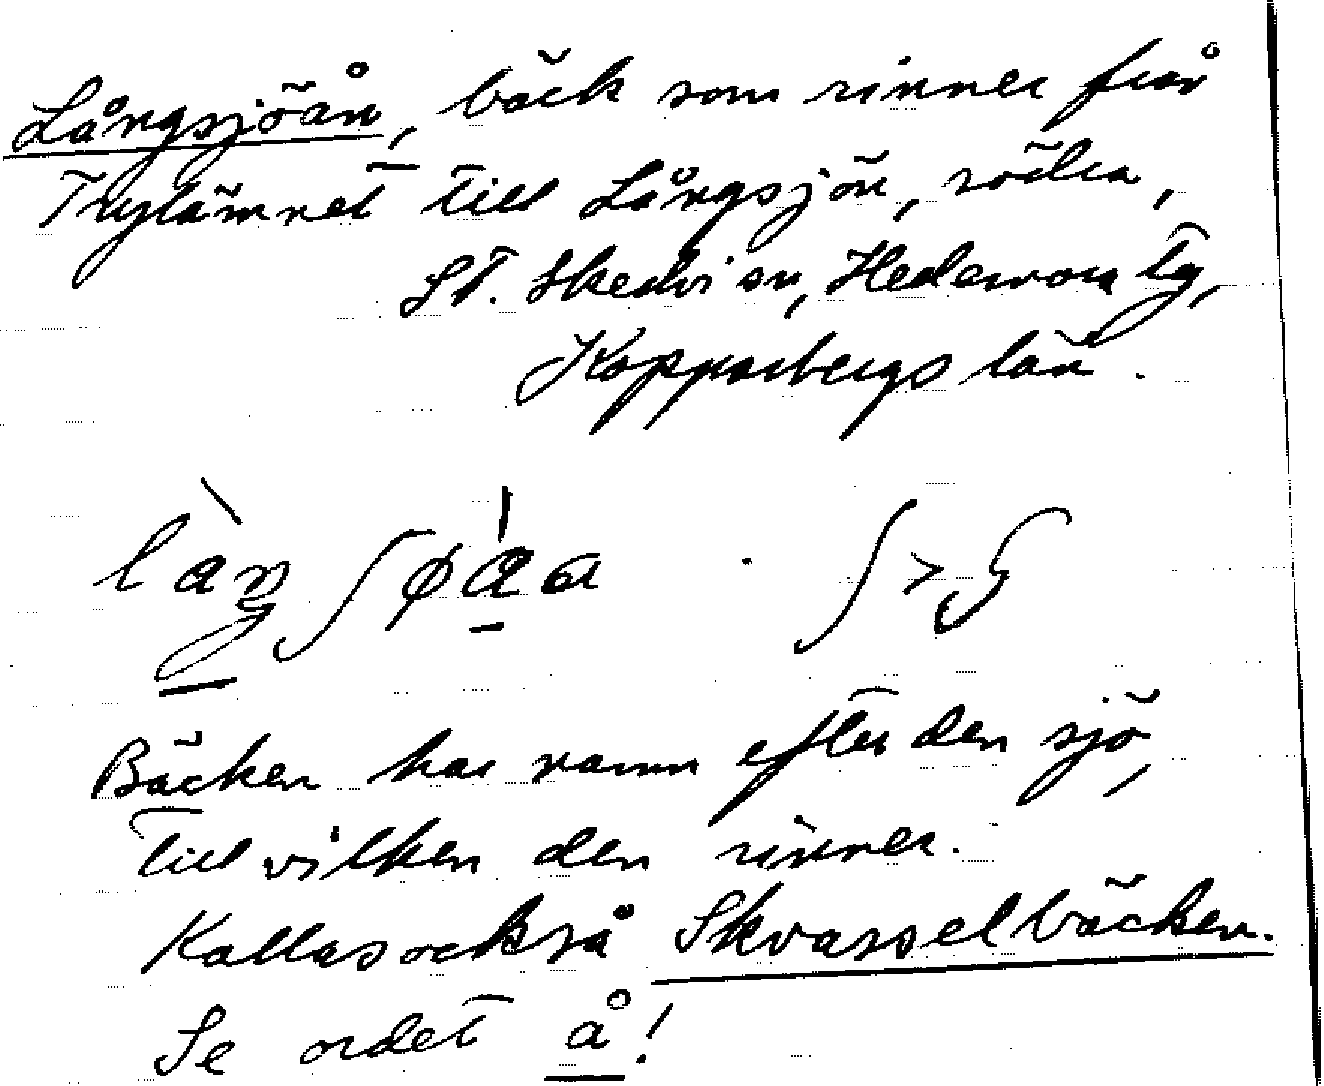 Långsjöån, bäck som rinner från
Trytämnet till Långsjön, södra,
St. Skedvi sn, Hedemora tg,
Kopparbergs län.
Bäcken har namn efter den sjö,
till vilken den rinner.
Kallas också Skvasselbäcken.
Se ordet å!